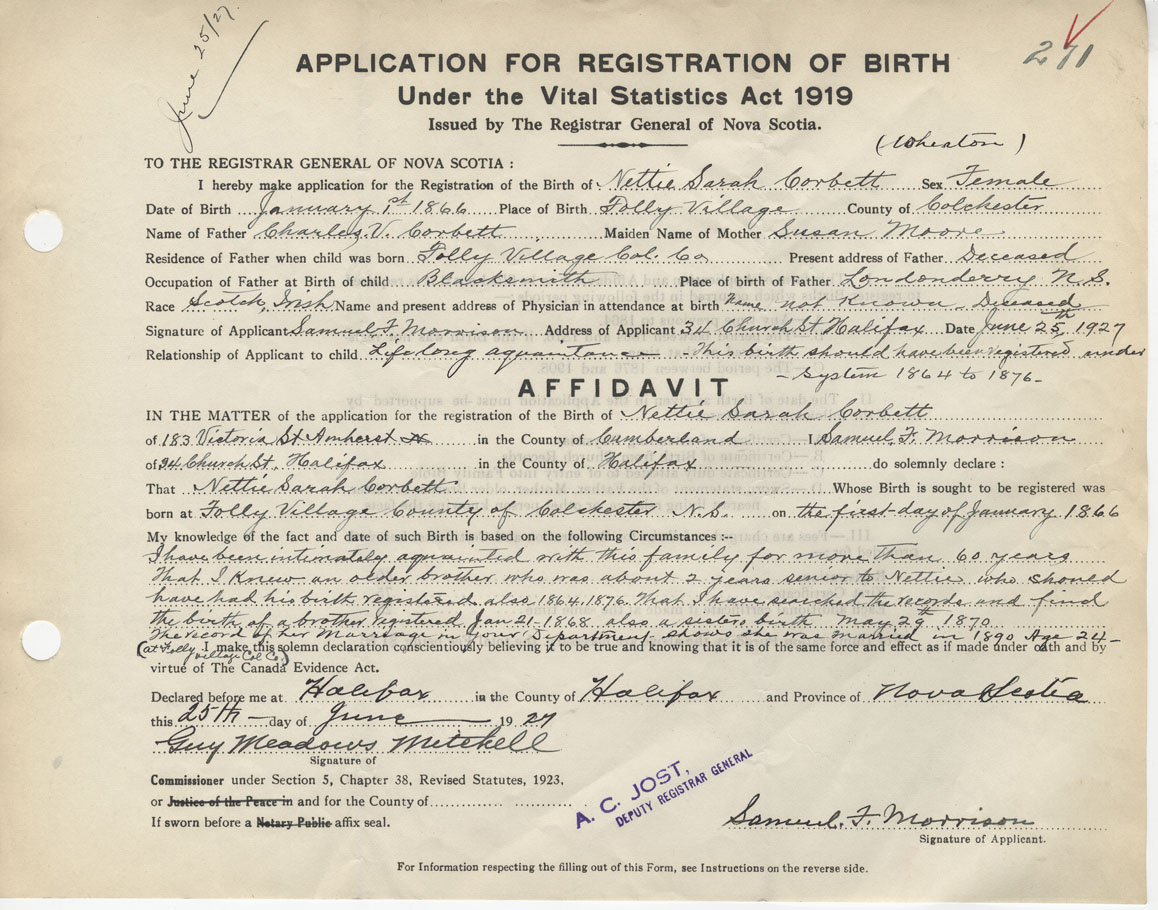 June 25/27.
271
APPLICATION FOR REGISTRATION OF BIRTH
Under the Vital Statistics Act 1919
Issued by The Registrar General of Nova Scotia.
(Wheaton)
TO THE REGISTRAR GENERAL OF NOVA SCOTIA :
I hereby make application for the Registration of the Birth of Nettie Sarah Corbett Sex Female
Date of Birth January 1st 1866 Place of Birth Folly Village County of Colchester
Name of Father Charles V. Corbett Maiden Name of Mother Susan Moore
Residence of Father when child was born Folly Village Col. Co Present address of Father Deceased
Occupation of Father at Birth of child Blacksmith Place of birth of Father Londonderry N.S.
Race Scotch, Irish Name and present address of Physician in attendance at birth Name not Known Deceased
Signature of Applicant Samuel F. Morrison Address of Applicant 34 Church St Halifax Date June 25th, 1927
Relationship of Applicant to child Lifelong aquantance - This birth should have been registered under
- System 1864 to 1876 -
AFFIDAVIT
IN THE MATTER of the application for the registration of the Birth of Nettie Sarah Corbett
of 183 Victoria St Amherst in the County of Cumberland I Samuel F. Morrison
of 34 Church St. Halifax in the County of Halifax do solemnly declare :
That Nettie Sarah Corbett Whose Birth is sought to be registered was
born at Folly Village County of Colchester N.S. on the first day of January 1866
My knowledge of the fact and date of such Birth is based on the following Circumstances :--
I have been intimately aquainted with this family for more than 60 years
That I Knew an older brother who was about 2 years senior to Nettie who should
have had his birth registered also 1864-1876. That I have searched the records and find
the birth of a brother registered Jan 21-1868 also a sisters birth May 29th 1870
The record of her Marriage in your Department shows she was married in 1890 Age 24-
(at Folly Village Col Co) I make this solemn declaration conscientiously believing it to be true and knowing that it is of the same force and effect as if made under oath and by
virtue of The Canada Evidence Act.
Declared before me at Halifax in the County of Halifax and Province of Nova Scotia
this 25th day of June 1927
Guy Meadows Mitchell
Signature of
Commissioner under Section 5, Chapter 38, Revised Statutes, 1923.
or Justice of the Peace in and for the County of
If sworn before a Notary Public affix seal.
A. C. JOST,
DEPUTY REGISTRAR GENERAL
Samuel. F. Morrison
Signature of Applicant.
For Information respecting the filling out of this Form, see Instructions on the reverse side.